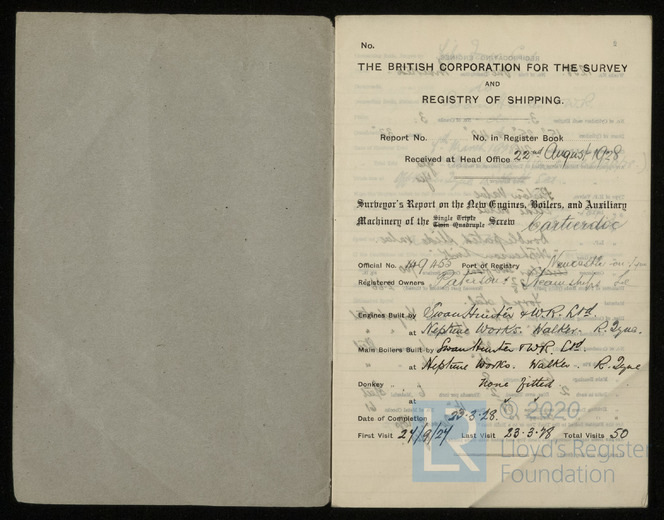 No.
THE BRITISH CORPORATION FOR THE SURVEY
AND
REGISTRY OF SHIPPING.
Report No. No. in Register Book
Received at Head Office 22nd August 1928
Surveyor's Report on the New Engines, Boilers, and Auxiliary
Machinery of the Single Triple Twin Quadruple Screw Cartierdoc
Official No. 149455 Port of Registry Newcastle on Tyne
Registered Owners Paterson Steamships Ld
Engines Built by Swan Hunter & W.R. Ltd.
at Neptune Works. Walker. R. Tyne.
Main Boilers Built by Swan Hunter & W.R. Ltd.
at Neptune Works. Walker. R. Tyne
Donkey None fitted
at
Date of Completion 23-3-28.
First Visit 27/9/27 Last Visit 23-3-28 Total Visits 50
© 2020
LR
Lloyd's Register
Foundation